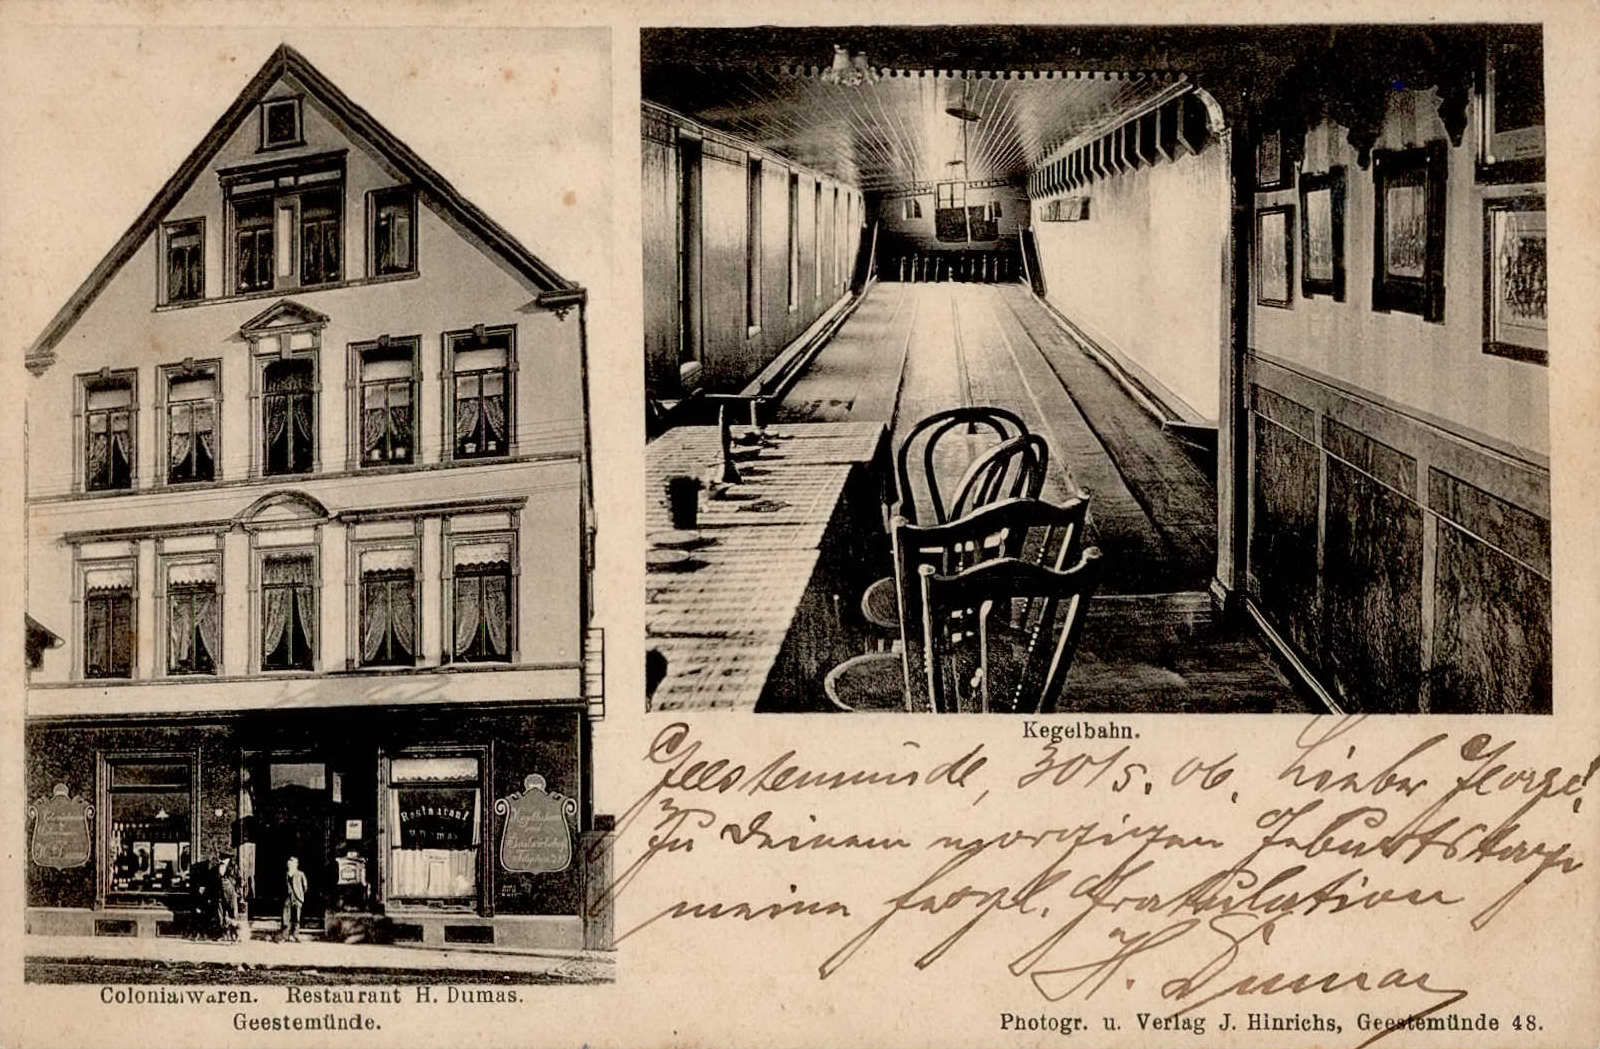 Restaurant
Kegelbahn.
Geestemünde, 30/5. 06. Lieber George!
Zu Deinem morgigen Geburtstage
meine herzl. Gratulation
H. Dumas
Colonialwaren. Restaurant H. Dumas.
Geestemünde.
Photogr. u. Verlag J. Hinrichs, Geestemünde 48.